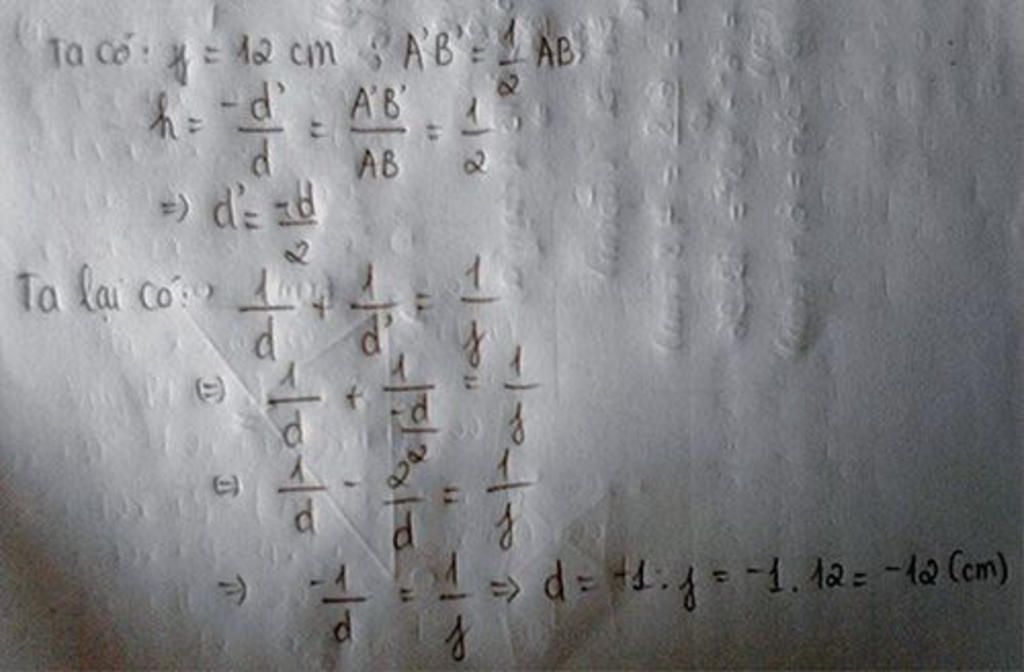 Ta có: f = 12 cm ; A'B' = 1/2 AB
k = -d'/d = A'B'/AB = 1/2
=> d' = -d/2
Ta lại có: 1/d + 1/d' = 1/f
(=) 1/d + 1/(-d/2) = 1/f
(=) 1/d - 2/d = 1/f
=> -1/d = 1/f => d = -1.f = -1.12 = -12 (cm)